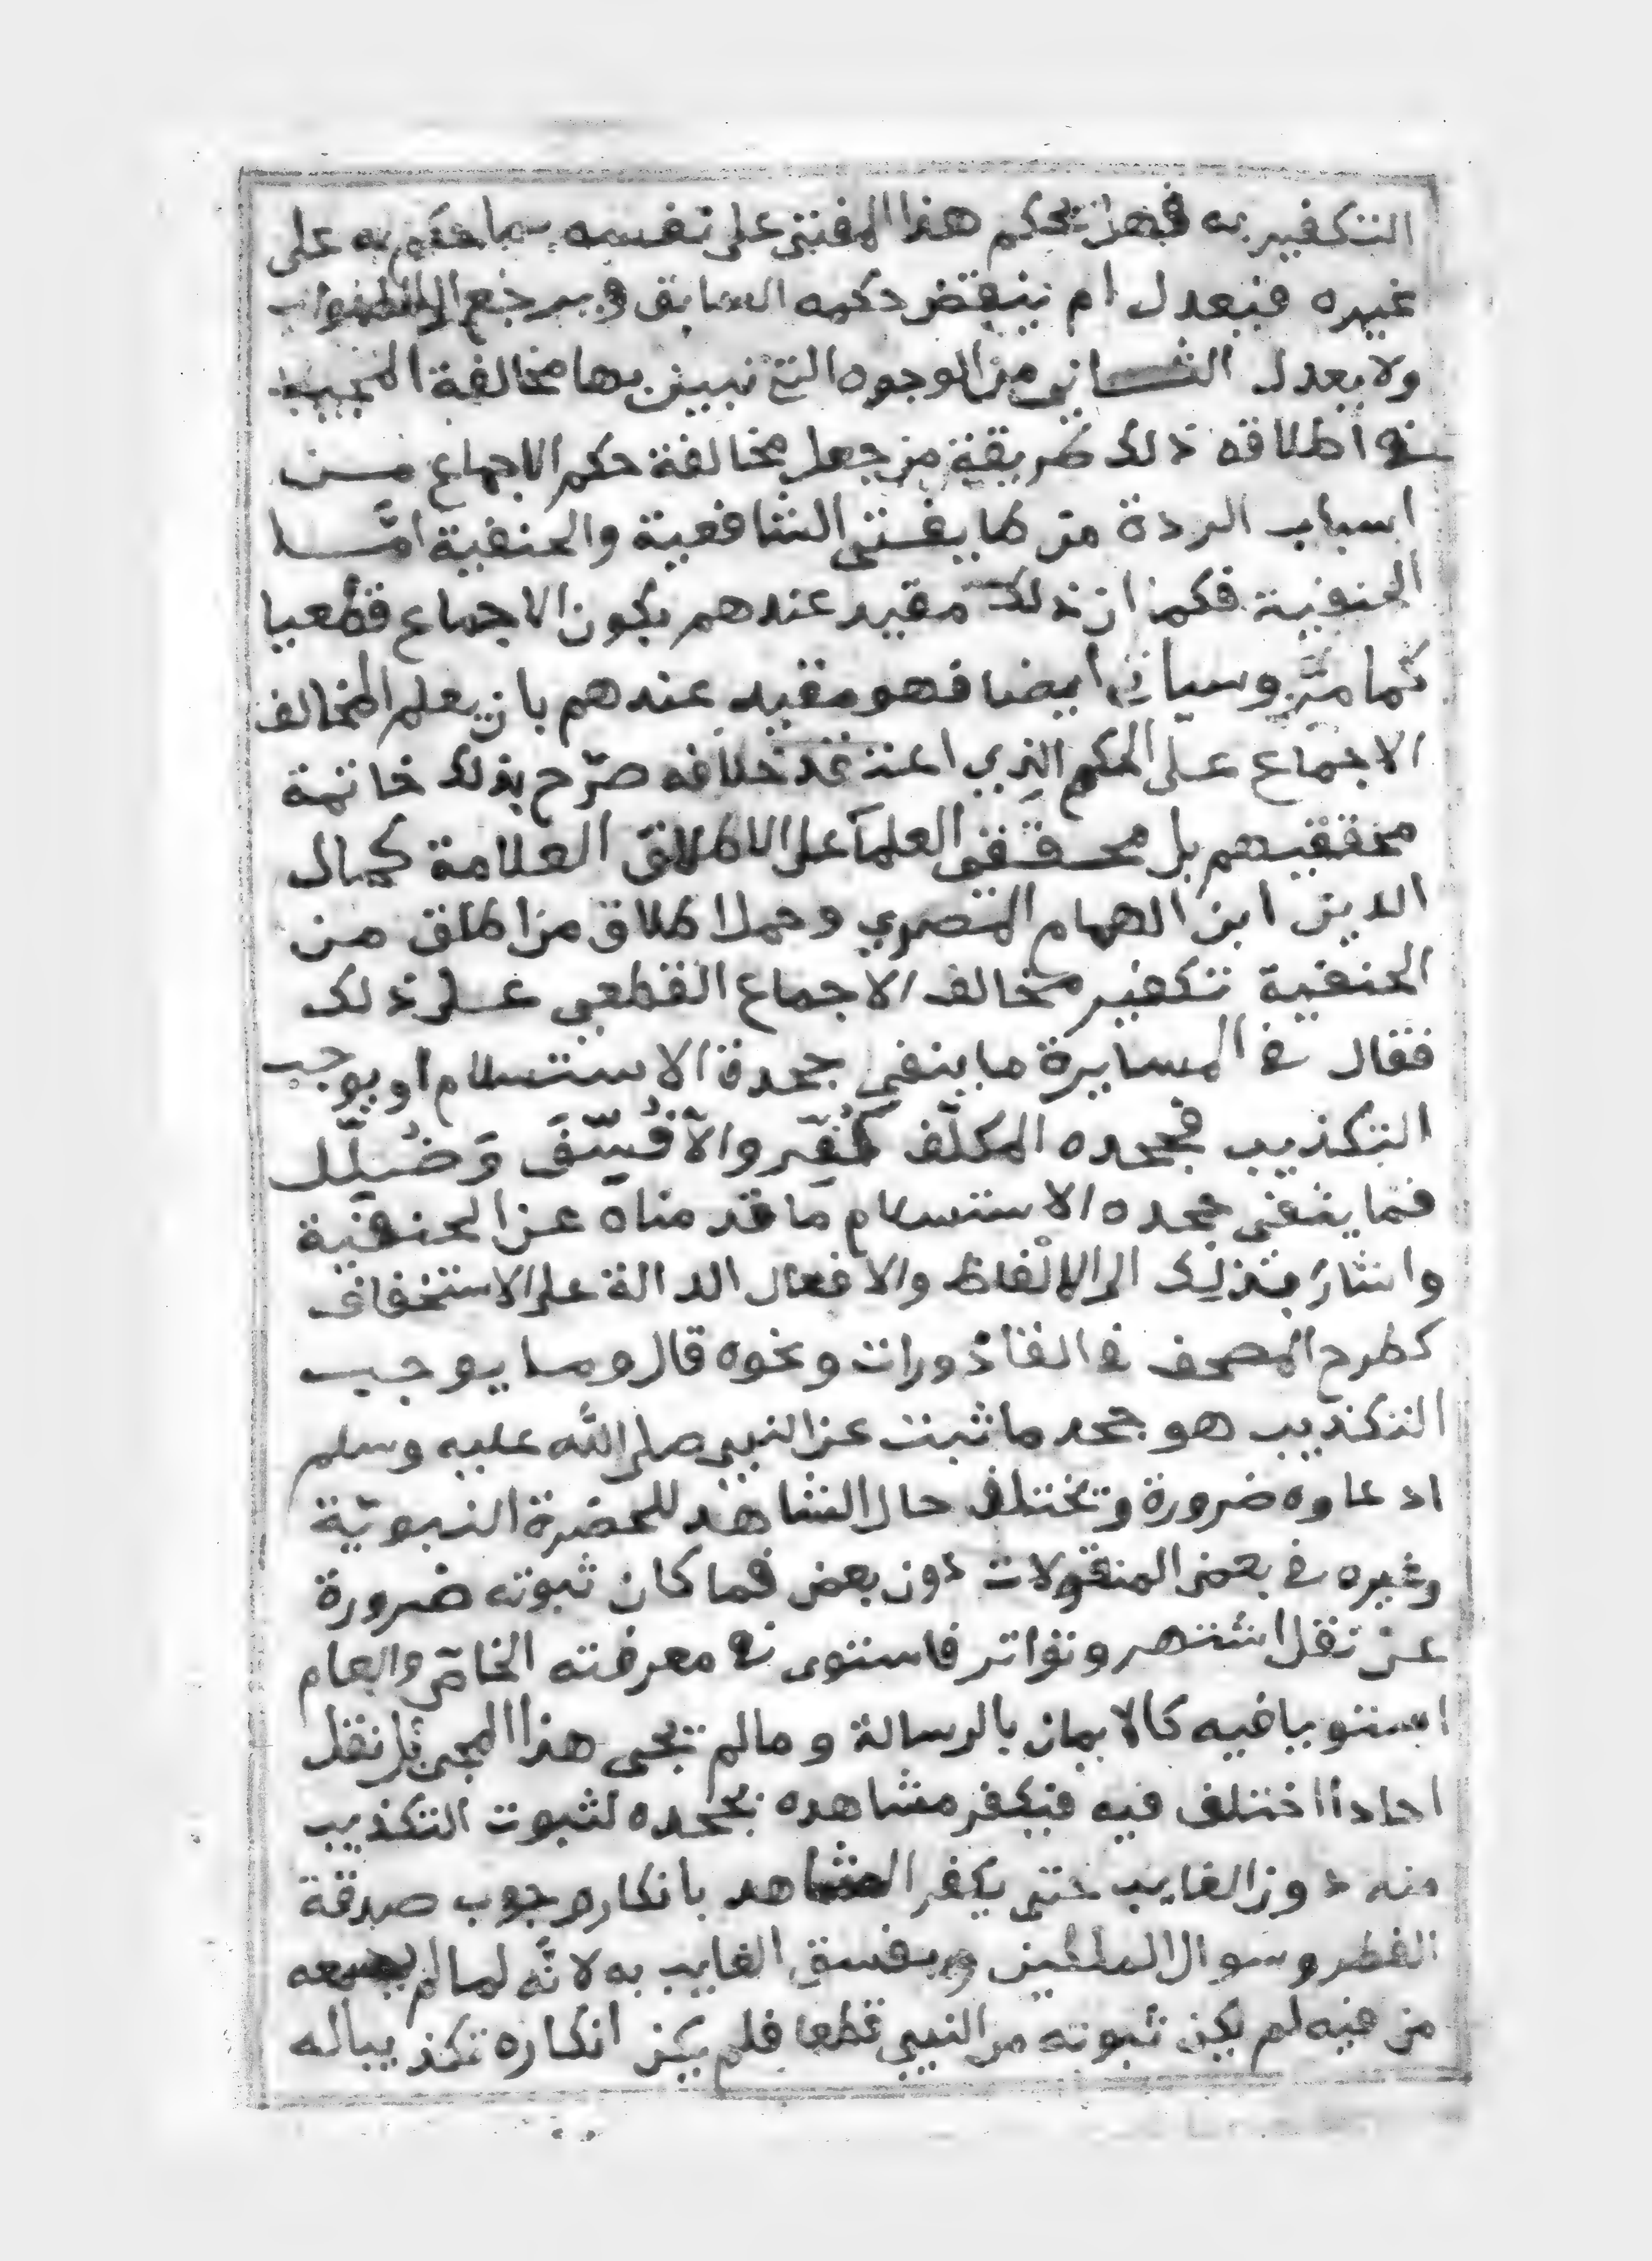 التكفير به فهل يحكم هذا المفتى على نفسه بما حكم به على
غيره فيعدل ام ينقض حكمه السابق ويرجع الى الصواب
ولا يعدل الثانى من الوجوه التى تبين بها مخالفة المجيب
فى اطلاقه ذلك طريقة من جعل مخالفة حكم الاجماع مـن
اسباب الردة من طايفتى الشافعية والحنفية امّـا
الحنفية فكما ان ذلك مقيد عندهم بكون الاجماع قطعيا
كما مرّ وسياتى ايضا فهو مقيد عندهم بان يعلم المخالف
الاجماع على الحكم الذي اعتقد خلافه صرّح بذلك خاتمة
محققيهم بل محققى العلمآ على الاطلاق العلامة كمال
الدين ابن الهمام المصري وحمل اطلاق من اطلق من
الحنفية تكفير مخالف الاجماع القطعي على ذلك
فقال فى المسايرة ما ينفى جحدة الاستسلام او يوجب
التكذيب فجحده المكلّف كُفِّر والّا فُسِّقَ وَضُلِّل
فما ينفى جحده الاستسلام ما قدمناه عن الحنفية
واشار بذلك الى الالفاظ والافعال الدالة على الاستخفاف
كطرح المصحف فى القاذورات ونحوه قال وما يوجب
التكذيب هو جحد ما ثبت عن النبي صلى الله عليه وسلم
ادعاوه ضرورة وتختلف حال الشاهد للحضرة النبويّة
وغيره فى بعض المنقولات دون بعض فما كان ثبوته ضرورة
عن نقل اشتهر وتواتر فاستوى فى معرفته الخاصّ والعام
استويا فيه كالايمان بالرسالة وما لم يجى هذا المجئ بل نقل
احادا اختلف فيه فيكفر مشاهده بجحده لثبوت التكذيب
منه دون الغايب حتى يكفر المشاهد بانكار وجوب صدقة
الفطر وسوال الملكين ويفسق الغايب به لانّه لما لم يسمعه
من فيه لم يكن ثبوته من النبي قطعا فلم يكن انكاره تكذيبا له